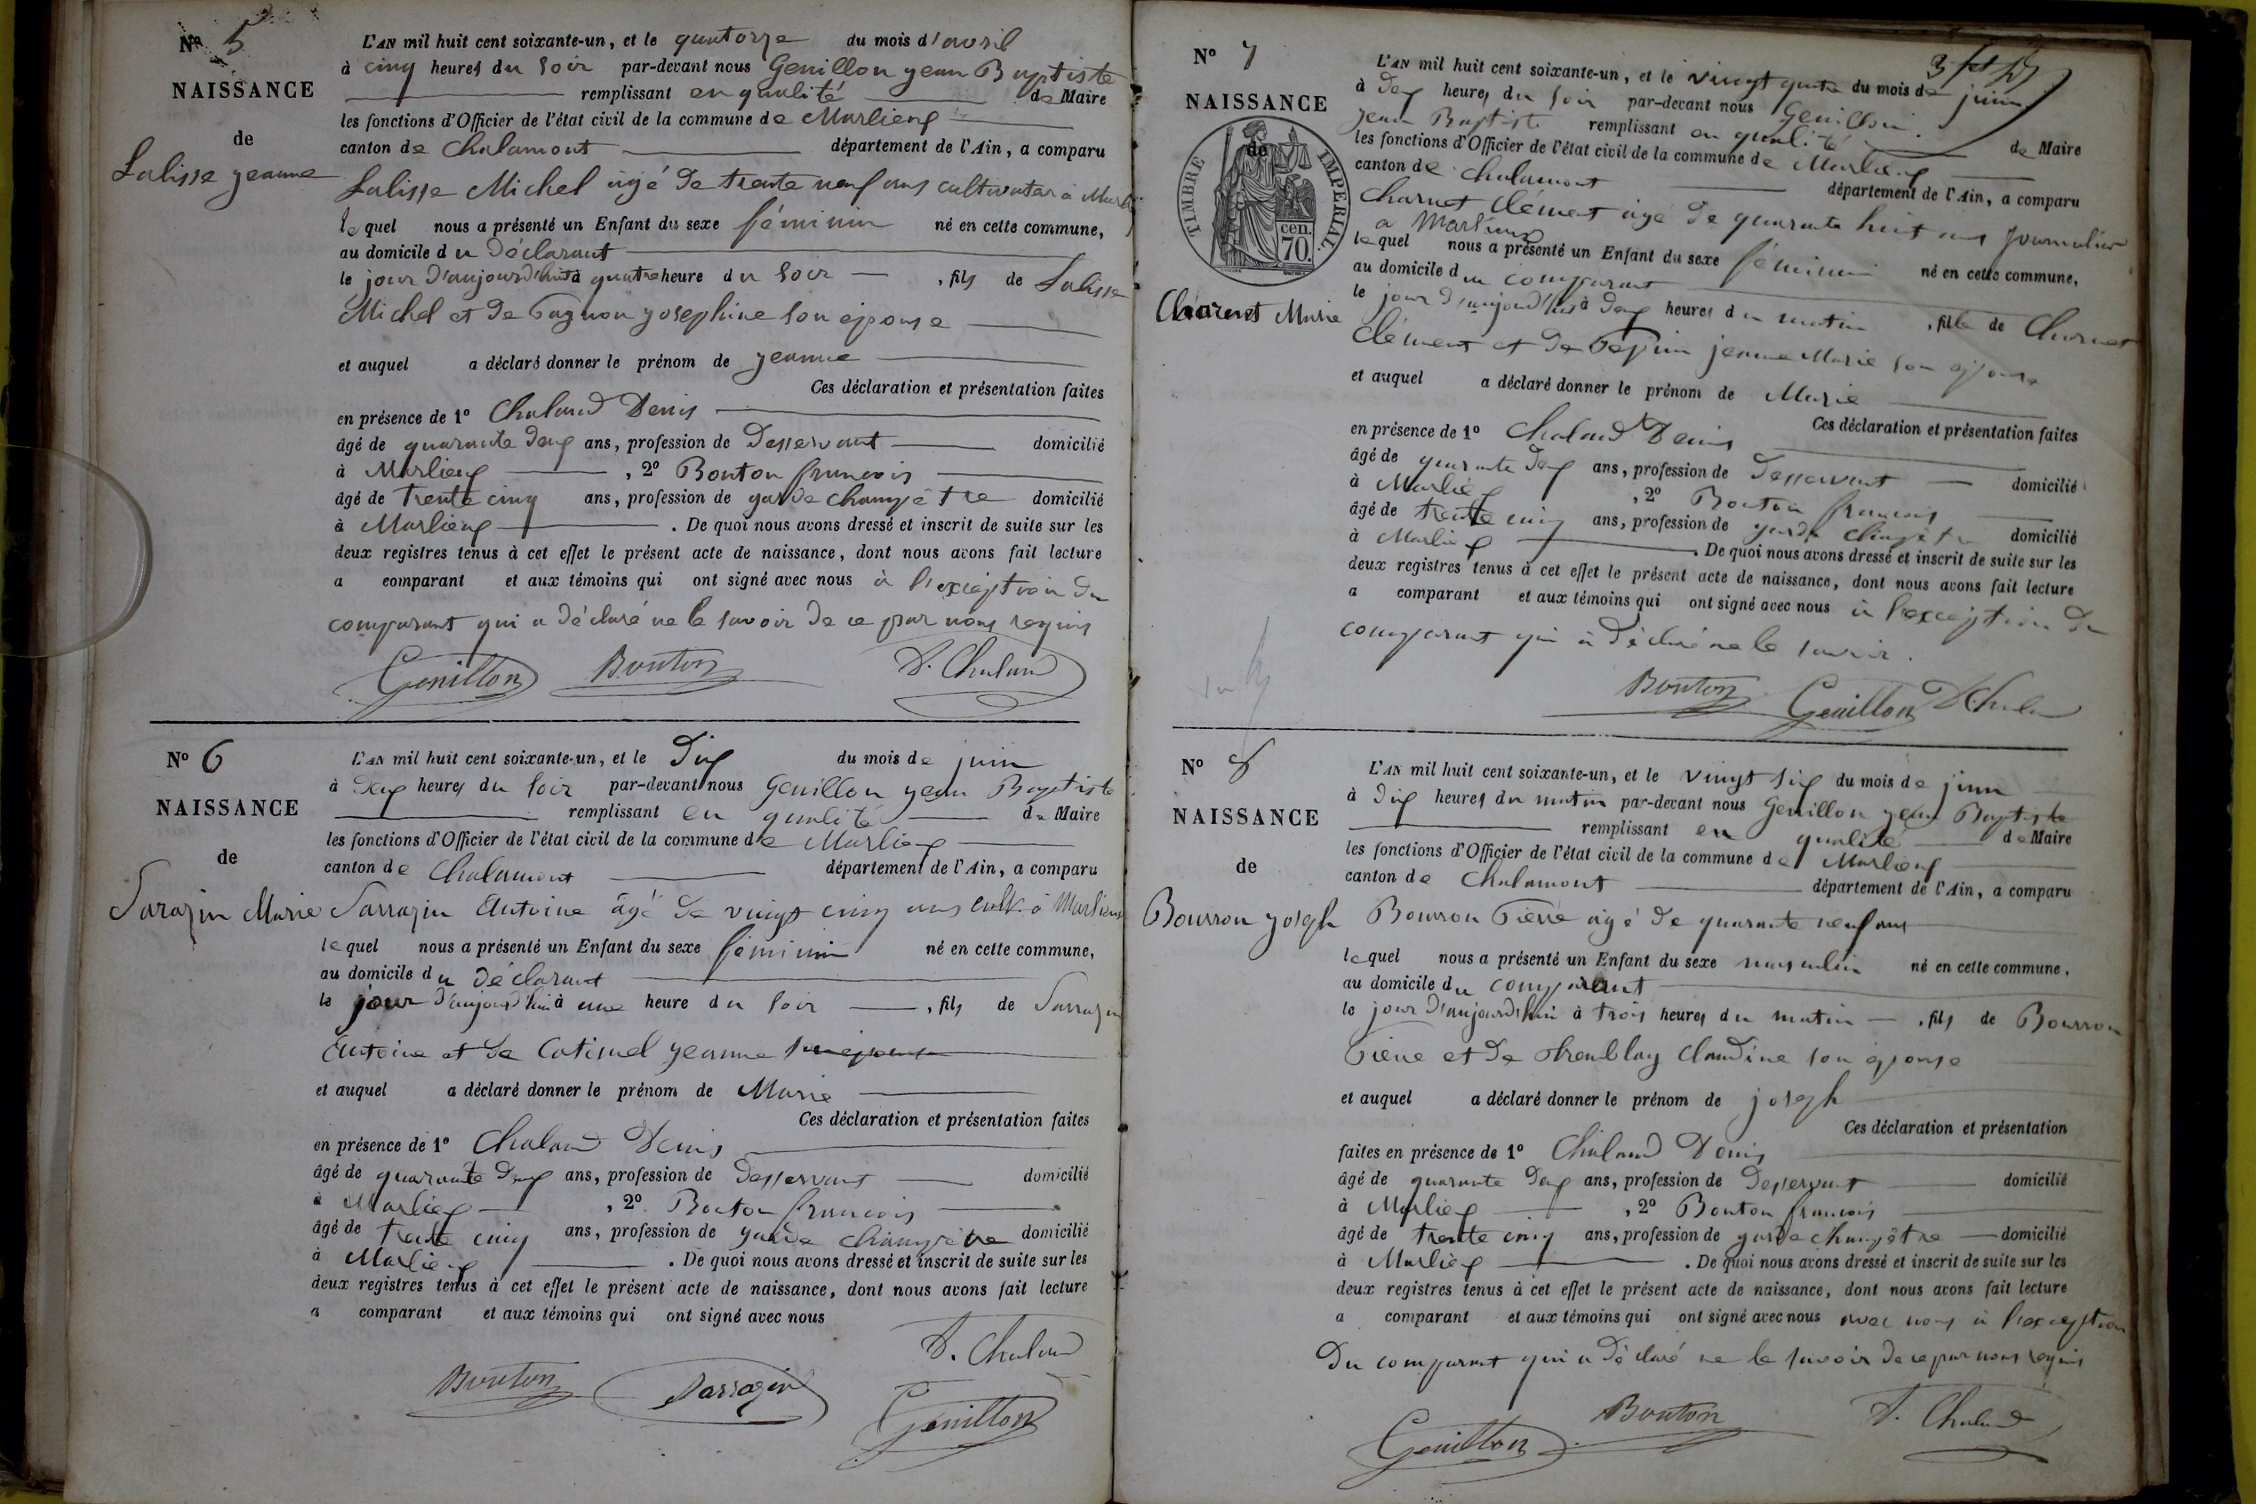 N° 5
NAISSANCE
de
Lalisse jeanne
L'AN mil huit cent soixante-un, et le quatorze du mois d'avril
à cinq heures du soir par-devant nous Genillon jean Baptiste
remplissant en qualité de Maire
les fonctions d'Officier de l'état civil de la commune de Marlieux
canton de Chalamont département de l'Ain, a comparu
Lalisse Michel âgé de trente neuf ans cultivateur à
lequel nous a présenté un Enfant du sexe féminin né en cette commune,
au domicile du déclarant
le jour d'aujourd'hui à quatre heure du soir , fils de Lalisse
Michel et de josephine son epouse
et auquel a déclaré donner le prénom de jeanne
Ces déclaration et présentation faites
en présence de 1° Chaland Denis
âgé de quarante deux ans, profession de Desservant domicilié
à Marlieux , 2° Bouton francois
âgé de trente cinq ans, profession de garde champêtre domicilié
à Marlieux . De quoi nous avons dressé et inscrit de suite sur les
deux registres tenus à cet effet le présent acte de naissance, dont nous avons fait lecture
a comparant et aux témoins qui ont signé avec nous à l'exception du
comparant qui a déclaré ne le savoir de ce par nous requis
Genillon Bouton D. Chaland
N° 6
NAISSANCE
de
Sarazin Marie
L'AN mil huit cent soixante-un, et le Dix du mois de juin
à deux heures du soir par-devant nous Genillon jean Baptiste
remplissant en qualité de Maire
les fonctions d'Officier de l'état civil de la commune de Marlieux
canton de Chalamont département de l'Ain, a comparu
Sarrazin Antoine âgé de vingt cinq ans cult. à Marlieux
lequel nous a présenté un Enfant du sexe féminin né en cette commune,
au domicile du déclarant
le jour d'aujourd'hui à une heure du soir , fils de Sarrazin
Antoine et de jeanne son epouse
et auquel a déclaré donner le prénom de Marie
Ces déclaration et présentation faites
en présence de 1° Chaland Denis
âgé de quarante deux ans, profession de Desservant domicilié
à Marlieux , 2° Bouton francois
âgé de trente cinq ans, profession de garde champêtre domicilié
à Marlieux . De quoi nous avons dressé et inscrit de suite sur les
deux registres tenus à cet effet le présent acte de naissance, dont nous avons fait lecture
a comparant et aux témoins qui ont signé avec nous
D. Chaland
Bouton Sarrazin
Genillon
N° 7
NAISSANCE
de
TIMBRE IMPÉRIAL
cen.
70.
Charnet Marie
L'AN mil huit cent soixante-un, et le vingt quatre du mois de juin
à deux heures du soir par-devant nous Genillon
jean Baptiste remplissant en qualité de Maire
les fonctions d'Officier de l'état civil de la commune de Marlieux
canton de Chalamont département de l'Ain, a comparu
Charnet clément âgé de quarante huit ans journalier
a Marlieux
lequel nous a présenté un Enfant du sexe féminin né en cette commune,
au domicile du comparant
le jour d'aujourd'hui à deux heures du matin , fille de Charnet
Clément et de jeanne Marie son epouse
et auquel a déclaré donner le prénom de Marie
Ces déclaration et présentation faites
en présence de 1° Chaland Denis
âgé de quarante deux ans, profession de Desservant domicilié
à Marlieux , 2° Bouton francois
âgé de trente cinq ans, profession de garde champêtre domicilié
à Marlieux . De quoi nous avons dressé et inscrit de suite sur les
deux registres tenus à cet effet le présent acte de naissance, dont nous avons fait lecture
a comparant et aux témoins qui ont signé avec nous à l'exception du
comparant qui a déclaré ne le savoir.
Bouton Genillon D. Chaland
N° 8
NAISSANCE
de
Bourron joseph
L'AN mil huit cent soixante-un, et le vingt six du mois de juin
à dix heures du matin par-devant nous Genillon jean Baptiste
remplissant en qualité de Maire
les fonctions d'Officier de l'état civil de la commune de Marlieux
canton de Chalamont département de l'Ain, a comparu
Bourron Pierre âgé de quarante neuf ans
lequel nous a présenté un Enfant du sexe masculin né en cette commune,
au domicile du comparant
le jour d'aujourd'hui à trois heures du matin , fils de Bourron
Pierre et de Tremblay Claudine son épouse
et auquel a déclaré donner le prénom de joseph
Ces déclaration et présentation
faites en présence de 1° Chaland Denis
âgé de quarante deux ans, profession de Desservant domicilié
à Marlieux , 2° Bouton francois
âgé de trente cinq ans, profession de garde champêtre domicilié
à Marlieux . De quoi nous avons dressé et inscrit de suite sur les
deux registres tenus à cet effet le présent acte de naissance, dont nous avons fait lecture
a comparant et aux témoins qui ont signé avec nous avec nous à l'exception
du comparant qui a déclaré ne le savoir de ce par nous requis
Genillon Bouton D. Chaland